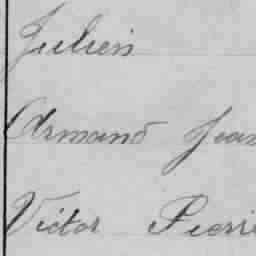 Julien
Armand Jean
Victor Pierre